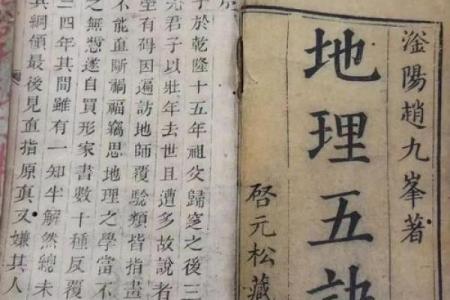 滏陽趙九峯著
地理五訣
啓元松藏
予於乾隆十五年祖父歸窆之後三
先君子以壯年去世且遭多故說者
坐有碍因遍訪地師覆驗類皆指畫
不能直斷禍福竊思地理之學當不
之無憑遂自買形家書數十種反覆
三四年其間雖有一知半解然總未
其綱領最後見直指原真又嫌其人